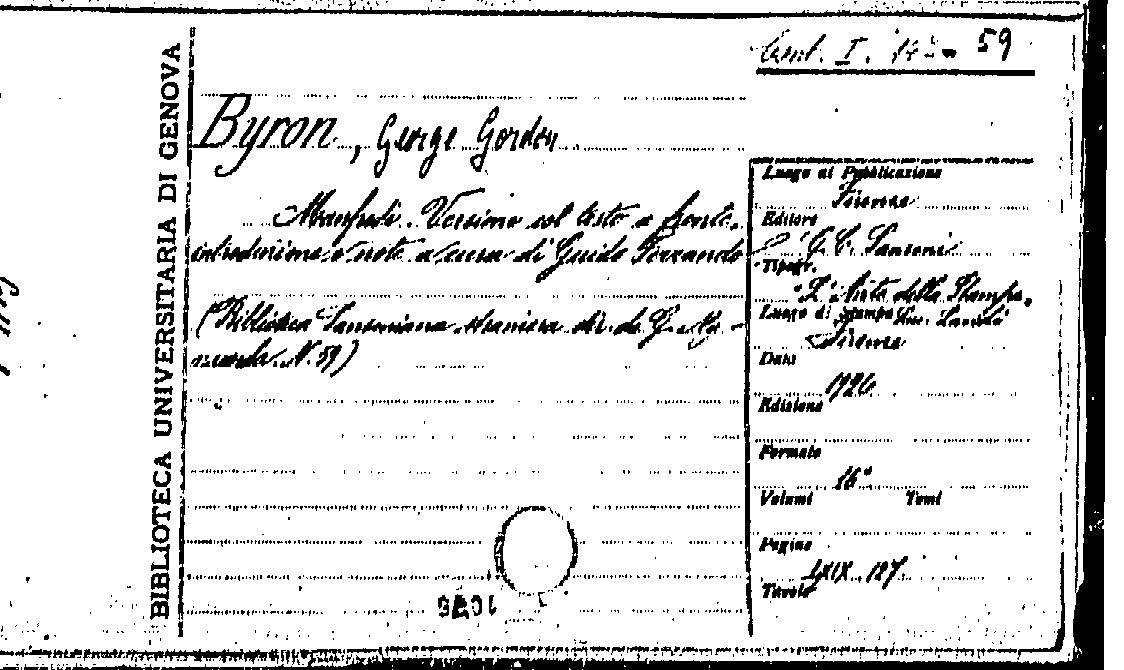 BIBLIOTECA UNIVERSITARIA DI GENOVA
I. 59
Byron, George Gordon
Manfredi. Versione col testo a fronte,
introduzione e note a cura di Guido Ferrando
(Biblioteca Sansoniana straniera dir. da G. Ma-
nacorda N. 59)
Luogo di Pubblicazione
Firenze
Editore
G. C. Sansoni
Tipogr.
"L'Arte della Stampa"
Luogo di Stampa Succ. Landi
Firenze
Data
1926
Edizione
Formato
16°
Volumi Tomi
Pagine
LXIX, 187
Tavole